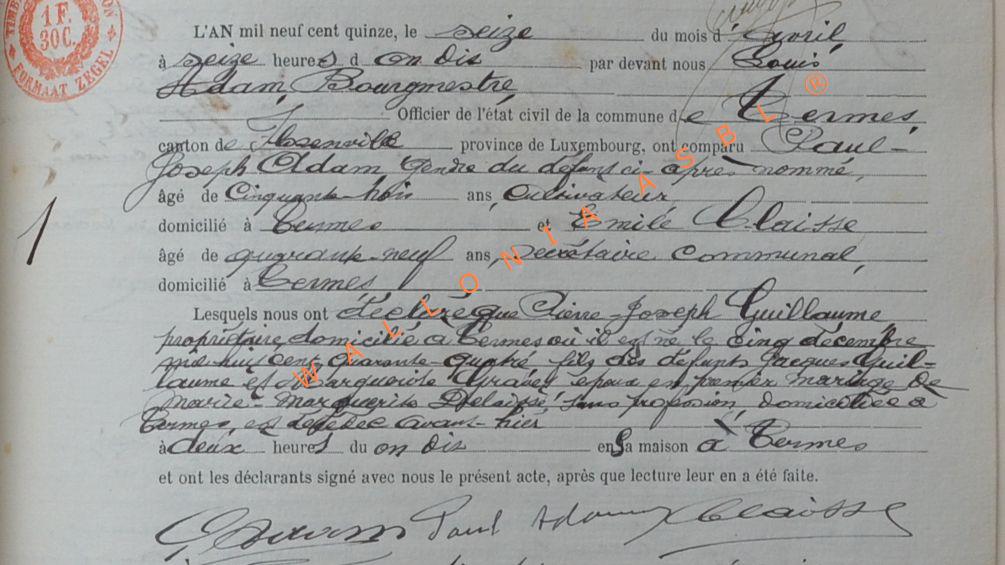 TIMB ON
1 F.
30 C.
FORMAAT ZEGEL
L'AN mil neuf cent quinze, le seize du mois d' avril
à seize heures d on dis par devant nous Louis
Adam, Bourgmestre
Officier de l'état civil de la commune de Termes,
canton de province de Luxembourg, ont comparu Paul-
Joseph Adam gendre du défunt ci-après nommé,
âgé de Cinquante-trois ans, cultivateur
domicilié à Termes et Emile Claisse
âgé de quarante-neuf ans, secrétaire communal,
domicilié à Termes
Lesquels nous ont déclaré que Pierre-Joseph Guillaume
propriétaire domicilié à Termes où il est né le cinq décembre
mil huit cent quarante-quatre, fils des défunts Jacques Guil-
laume et Marguerite époux en premier mariage de
Marie-Marguerite sans profession domiciliée à
Termes, est décédé avant-hier
à deux heures du on dis en sa maison à Termes
et ont les déclarants signé avec nous le présent acte, après que lecture leur en a été faite.
Paul Adam Claisse
WALLONIA ASBL ®